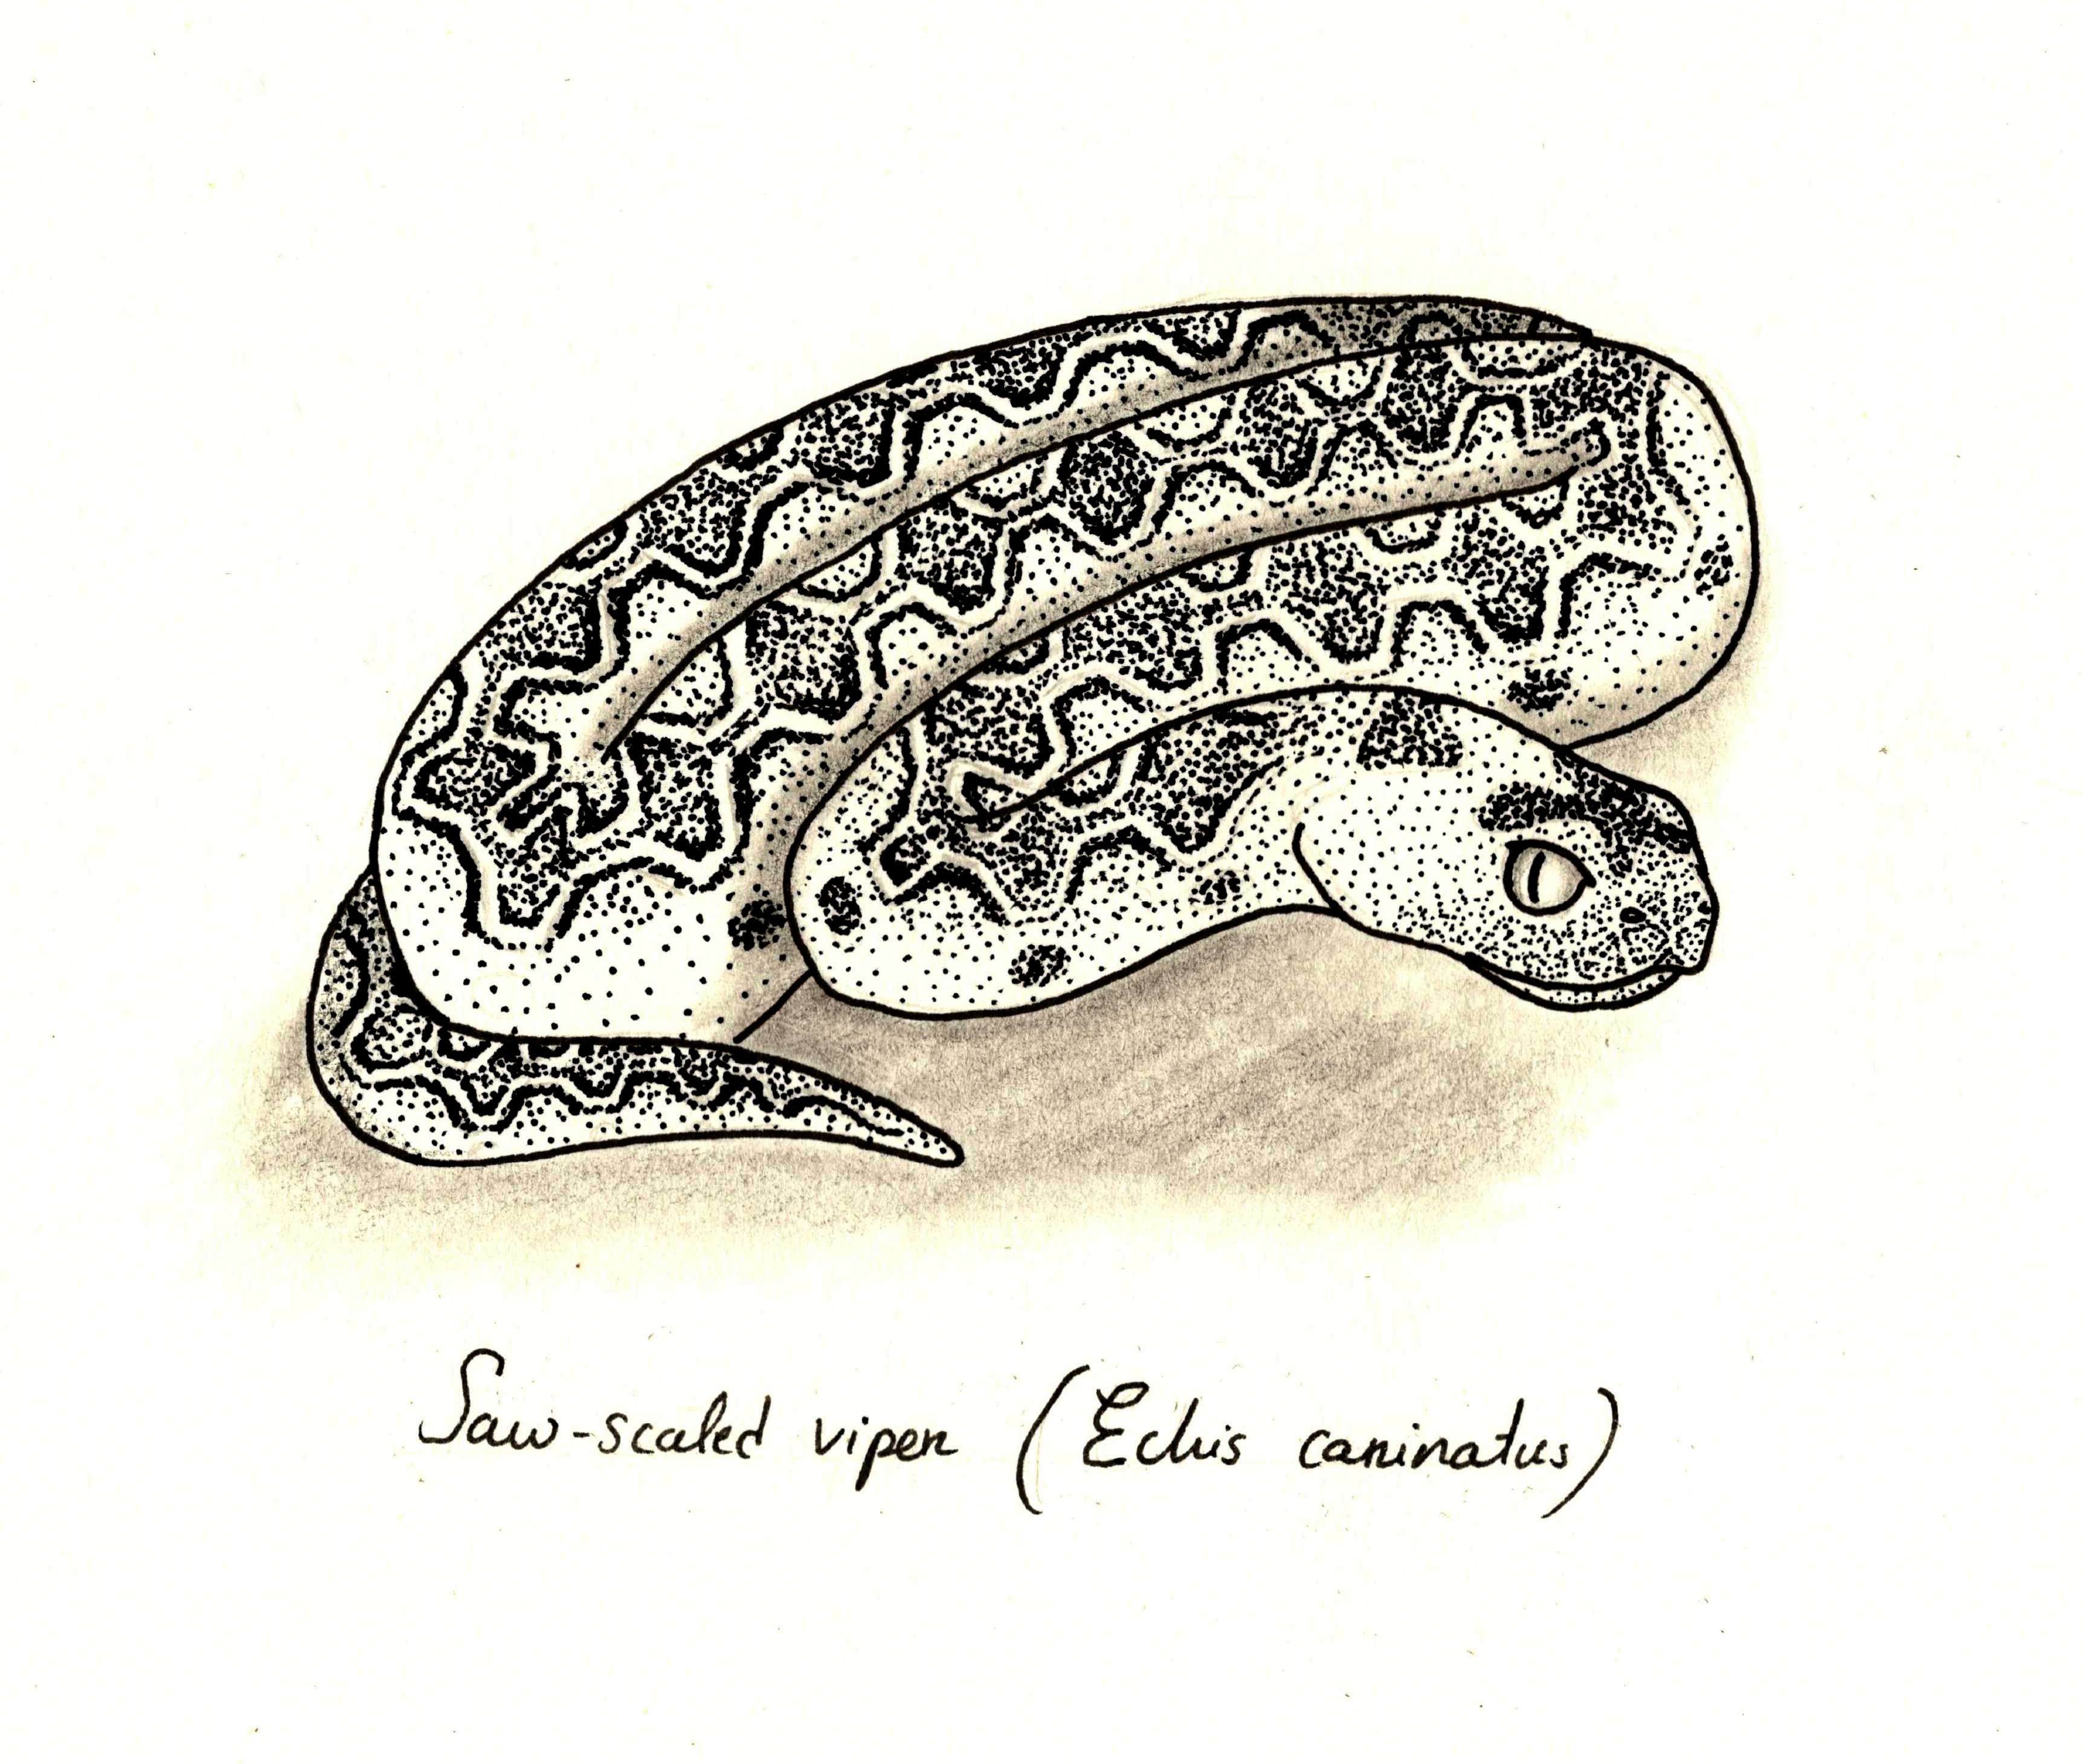 Saw-scaled viper (Echis carinatus)